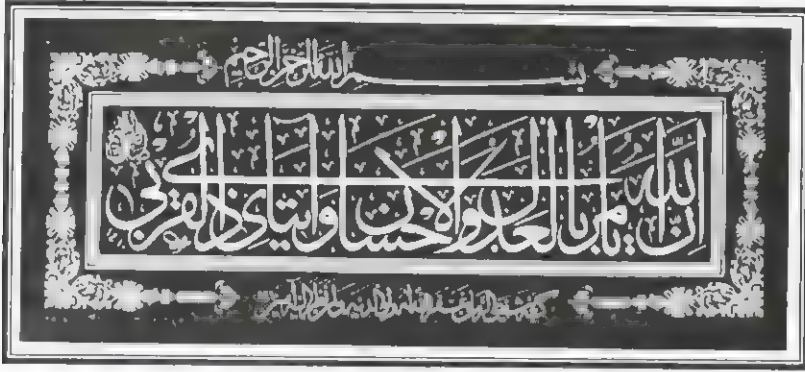 بسم الله الرحمن الرحيم
إن الله يأمر بالعدل والإحسان وإيتاي ذي القربى